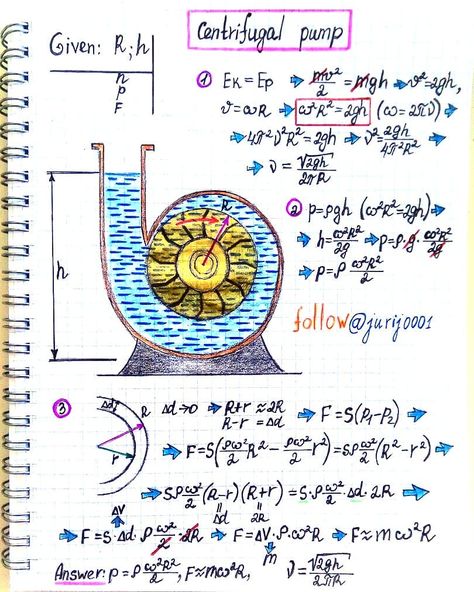 Centrifugal pump
Given: R; h
n
p
F
① Eₖ = Eₚ → mv²/2 = mgh → v² = 2gh,
v = ωR → ω²R² = 2gh (ω = 2πν) →
→ 4π²ν²R² = 2gh → ν² = 2gh/4π²R²
→ ν = √2gh/2πR
② p = ρgh (ω²R² = 2gh) →
→ h = ω²R²/2g → p = ρ·g·ω²R²/2g
→ p = ρ ω²R²/2
R
h
follow@jurij0001
③ Δd
R
r
Δd → 0 → R+r ≈ 2R
R-r = Δd
→ F = S(p₁-p₂) →
→ F = S(ρω²/2 R² - ρω²/2 r²) = Sρω²/2 (R²-r²) →
→ Sρω²/2 (R-r)(R+r) = S·ρω²/2·Δd·2R →
ΔV
Δd
2R
→ F = S·Δd·ρω²/2·2R → F = ΔV·ρ·ω²R → F ≈ mω²R
m
Answer: p = ρω²R²/2, F ≈ mω²R, ν = √2gh/2πR